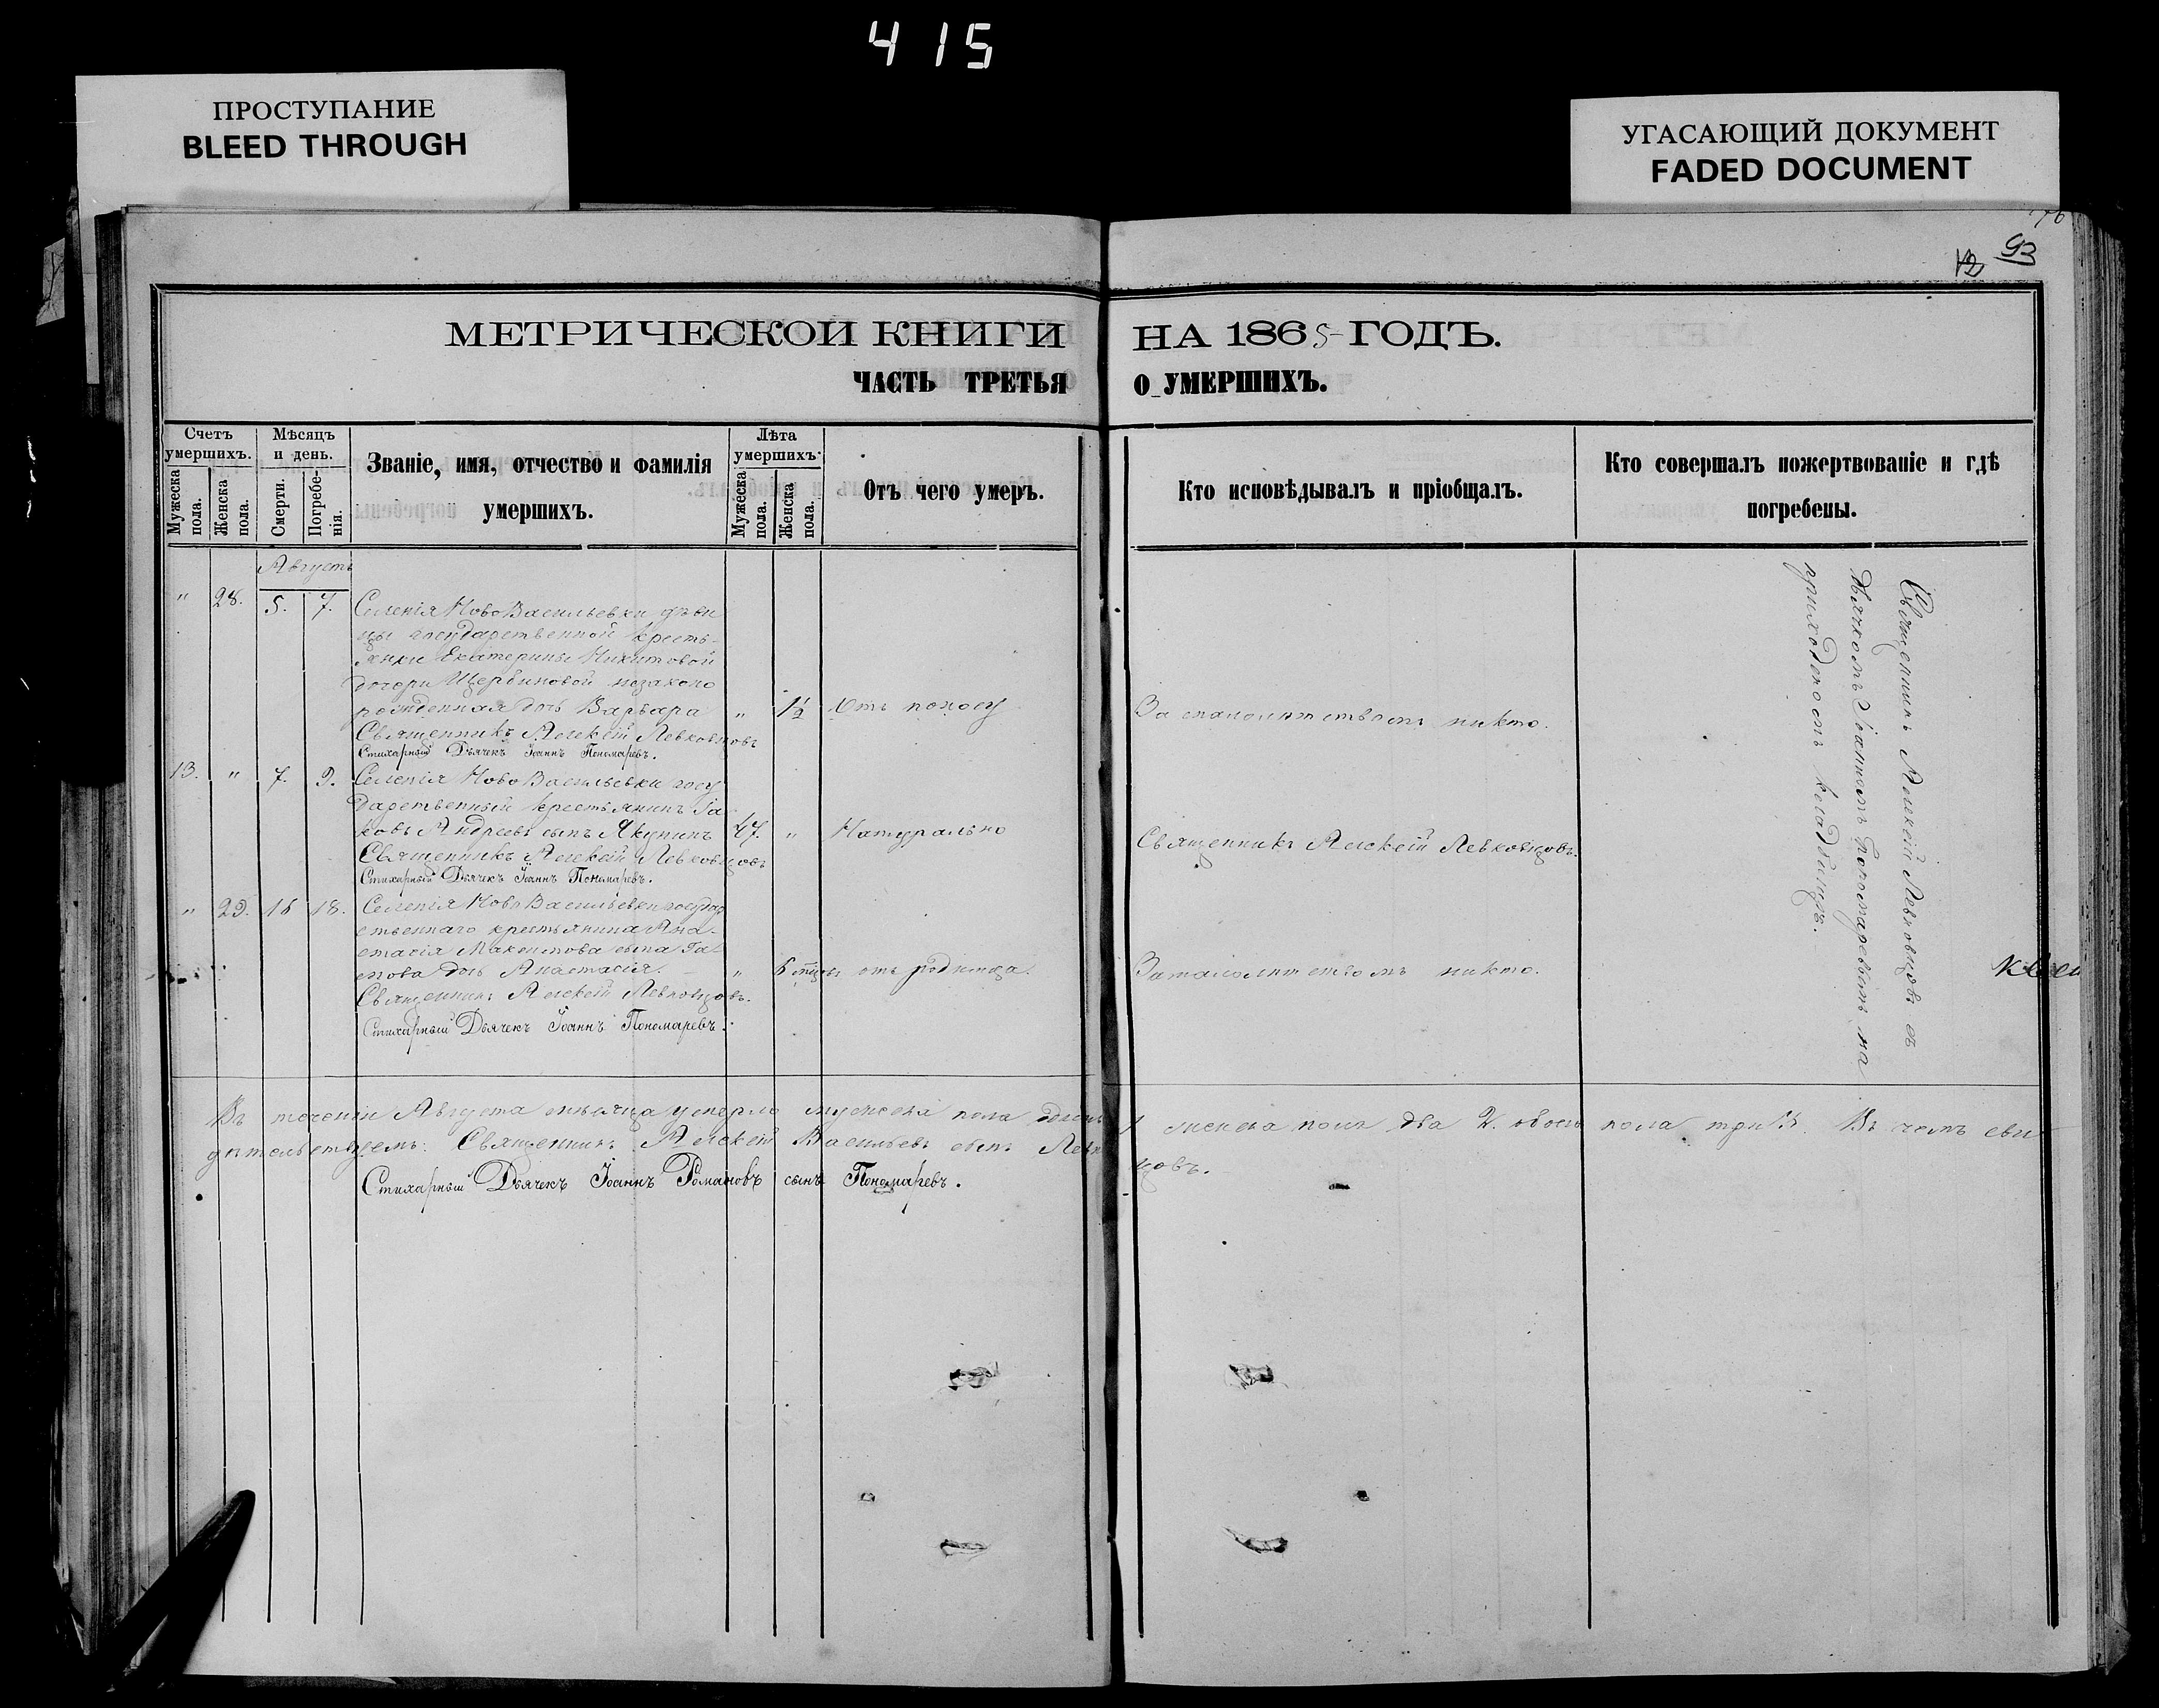 415
ПРОСТУПАНИЕ
BLEED THROUGH
УГАСАЮЩИЙ ДОКУМЕНТ
FADED DOCUMENT
93
12
МЕТРИЧЕСКОЙ КНИГИ НА 1865 ГОДЪ.
ЧАСТЬ ТРЕТЬЯ О УМЕРШИХЪ.
Счетъ умершихъ.
Мужеска пола.
Женска пола.
Мѣсяцъ и день.
Смерти.
Погребе-
нія.
Званіе, имя, отчество и фамилія
умершихъ.
Лѣта умершихъ.
Мужеска пола.
Женска пола.
Отъ чего умеръ.
Кто исповѣдывалъ и пріобщалъ.
Кто совершалъ пожертвованіе и гдѣ
погребены.
Августъ
" 28. 5. 7. Селенія Ново Васильевки дѣви
цы государственной кресть-
янки Екатерины Никитовой
дочери Щербиновой незаконо
рожденная дочь Варвара " 1½ Отъ поносу За малолѣтствомъ никто.
Священникъ Алексѣй Левковцовъ
Стихарный Дьячекъ Іоаннъ Пономаревъ.
13. " 7. 9. Селенія Ново Васильевки госу
дарственный крестьянинъ Іа
ковъ Андреевъ сынъ Якунинъ 47. " Натурально Священникъ Алексѣй Левковцовъ.
Священникъ Алексѣй Левковцовъ
Стихарный Дьячекъ Іоаннъ Пономаревъ.
" 29. 16 18. Селенія Ново Васильевки государ
ственнаго крестьянина Ана-
стасія Максимова сына
дочь Анастасія. " 6 мѣц. отъ родимца. За малолѣтствомъ никто.
Священникъ Алексѣй Левковцовъ.
Стихарный Дьячекъ Іоаннъ Пономаревъ.
Священникъ Алексѣй Левковцовъ съ
Дьячкомъ Іоанномъ Пономаревымъ на
приходскомъ кладбищѣ.
Въ теченіи Августа мѣсяца умерло мужеска пола одинъ 1 женска пола два 2. обоего пола три 3. Въ чемъ сви
дѣтельствуемъ: Священникъ Алексѣй Васильевъ сынъ Левковцовъ.
Стихарный Дьячекъ Іоаннъ Романовъ сынъ Пономаревъ.